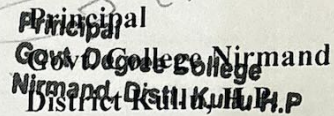 Principal
Govt. College Nirmand
District Kullu, H.P.
Principal
Govt. Degree College
Nirmand Distt. Kullu H.P